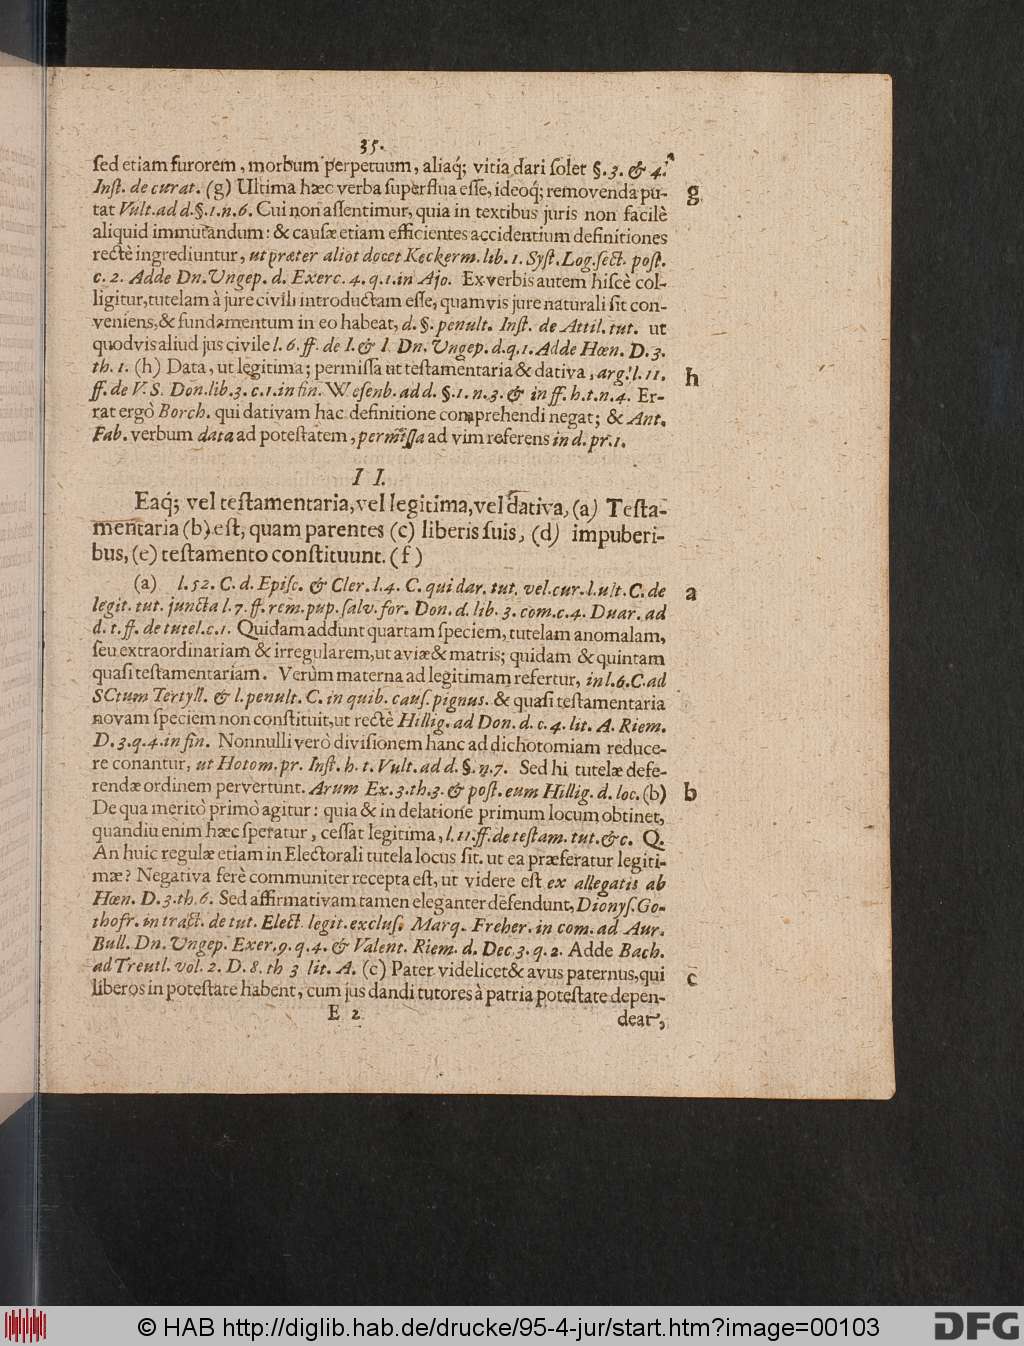 35.
ſed etiam furorem, morbum perpetuum, aliaq́; vitia dari ſolet §. 3. & 4.
Inſt. de curat. (g) Ultima hæc verba ſuperflua eſſe, ideoq́; removenda pu-
g
tat Vult. ad d. §. 1. n. 6. Cui non aſſentimur, quia in textibus juris non facilè
aliquid immutandum: & cauſæ etiam efficientes accidentium definitiones
rectè ingrediuntur, ut præter aliot docet Keckerm. lib. 1. Syſt. Log. ſect. poſt.
c. 2. Adde Dn. Ungep. d. Exerc. 4. q. 1. in Ajo. Ex verbis autem hiſcè col-
ligitur, tutelam à jure civili introductam eſſe, quamvis jure naturali ſit con-
veniens, & fundamentum in eo habeat, d. §. penult. Inſt. de Attil. tut. ut
quodvis aliud jus civile l. 6. ff. de I. & I. Dn. Ungep. d. q. 1. Adde Hœn. D. 3.
th. 1. (h) Data, ut legitima; permiſſa ut teſtamentaria & dativa, arg. l. 11.
h
ff. de V. S. Don. lib. 3. c. 1. in fin. Weſenb. ad d. §. 1. n. 3. & in ff. h. t. n. 4. Er-
rat ergò Borch. qui dativam hac definitione comprehendi negat; & Ant.
Fab. verbum data ad poteſtatem, permiſſa ad vim referens in d. pr. 1.
II.
Eaq́; vel teſtamentaria, vel legitima, vel dativa, (a) Teſta-
mentaria (b) eſt, quam parentes (c) liberis ſuis, (d) impuberi-
bus, (e) teſtamento conſtituunt. (f)
(a) l. 52. C. d. Epiſc. & Cler. l. 4. C. qui dar. tut. vel. cur. l. ult. C. de
a
legit. tut. juncta l. 7. ff. rem. pup. ſalv. for. Don. d. lib. 3. com. c. 4. Duar. ad
d. t. ff. de tutel. c. 1. Quidam addunt quartam ſpeciem, tutelam anomalam,
ſeu extraordinariam & irregularem, ut aviæ & matris; quidam & quintam
quaſi teſtamentariam. Verùm materna ad legitimam refertur, in l. 6. C. ad
SCtum Tertyll. & l. penult. C. in quib. cauſ. pignus. & quaſi teſtamentaria
novam ſpeciem non conſtituit, ut rectè Hillig. ad Don. d. c. 4. lit. A. Riem.
D. 3. q. 4. in fin. Nonnulli verò diviſionem hanc ad dichotomiam reduce-
re conantur, ut Hotom. pr. Inſt. h. t. Vult. ad d. §. n. 7. Sed hi tutelæ defe-
rendæ ordinem pervertunt. Arum Ex. 3. th. 3. & poſt. eum Hillig. d. loc. (b)
b
De qua meritò primò agitur: quia & in delatione primum locum obtinet,
quandiu enim hæc ſperatur, ceſſat legitima, l. 11. ff. de teſtam. tut. &c. Q.
An huic regulæ etiam in Electorali tutela locus ſit. ut ea præferatur legiti-
mæ? Negativa ferè communiter recepta eſt, ut videre eſt ex allegatis ab
Hœn. D. 3. th. 6. Sed affirmativam tamen eleganter defendunt, Dionyſ. Go-
thofr. in tract. de tut. Elect. legit. excluſ. Marq. Freher. in com. ad Aur.
Bull. Dn. Ungep. Exer. 9. q. 4. & Valent. Riem. d. Dec. 3. q. 2. Adde Bach.
ad Treutl. vol. 2. D. 8. th 3 lit. A. (c) Pater videlicet & avus paternus, qui
c
liberos in poteſtate habent, cum jus dandi tutores à patria poteſtate depen-
E 2
deat,
© HAB http://diglib.hab.de/drucke/95-4-jur/start.htm?image=00103
DFG